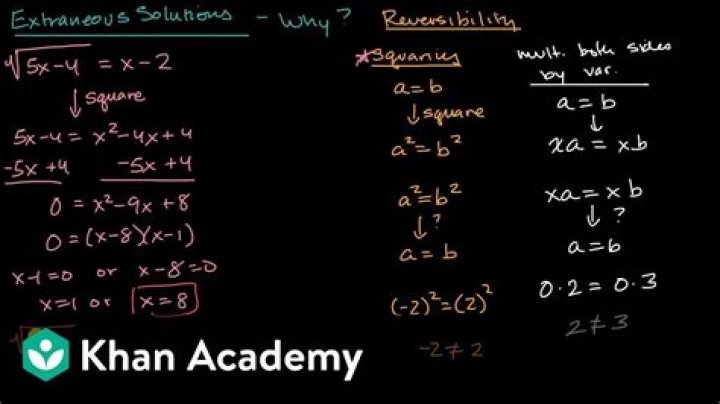 Extraneous Solutions - Why?
√5x-4 = x-2
↓ square
5x-4 = x²-4x+4
-5x+4 -5x+4
0 = x²-9x+8
0 = (x-8)(x-1)
x-1=0 or x-8=0
x=1 or x=8
Reversibility
*Squaring
a=b
↓ square
a²=b²
a²=b²
↓?
a=b
(-2)²=(2)²
-2≠2
mult. both sides
by var.
a=b
↓
xa = xb
xa = xb
↓?
a=b
0·2 = 0·3
2≠3
Khan Academy